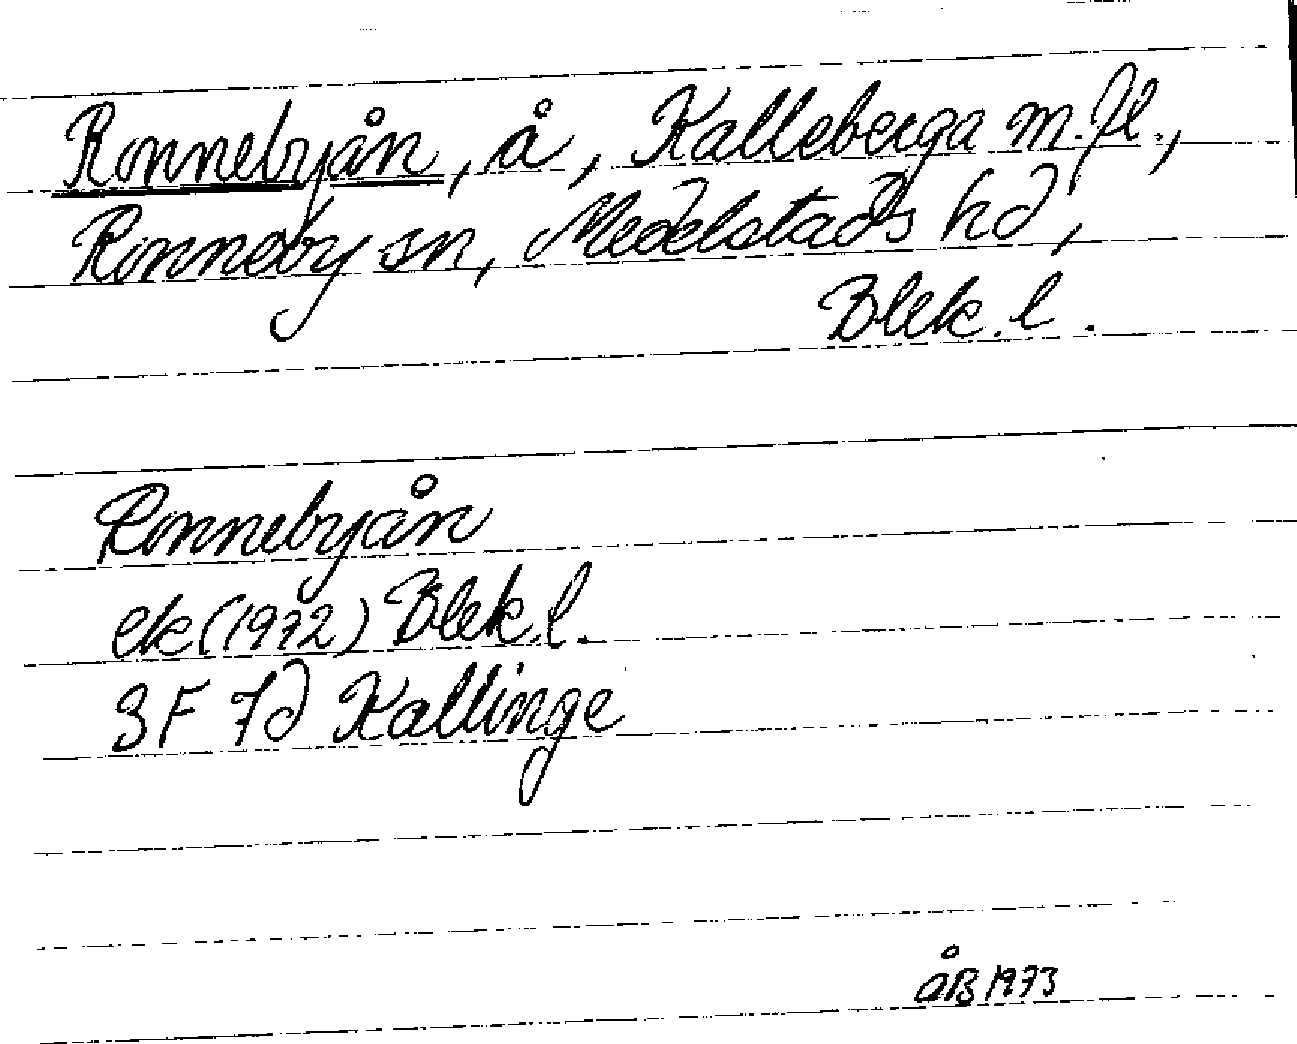 Ronnebyån, å, Kalleberga m.fl.,
Ronneby sn, Medelstads hd,
Blek. l.
Ronnebyån
ek (1972) Blek. l.
3F 7d Kallinge
åB 1973